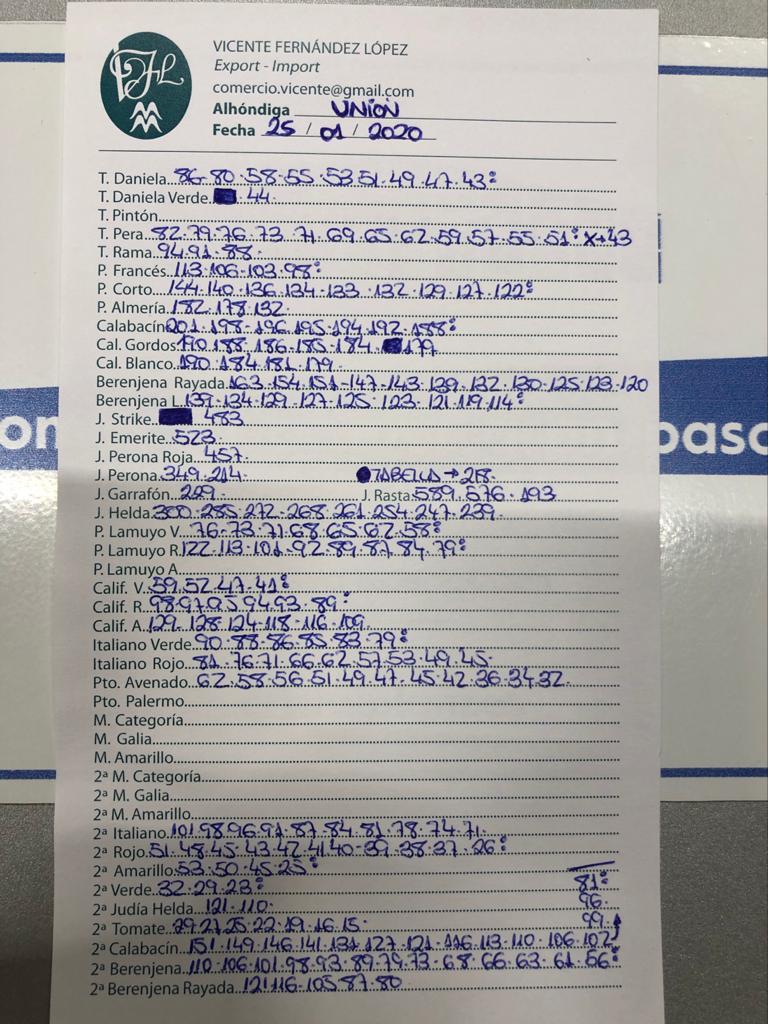 VICENTE FERNÁNDEZ LÓPEZ
Export - Import
comercio.vicente@gmail.com
Alhóndiga UNIÓN
Fecha 25 / 01 / 2020
T. Daniela 86-80-58-55-53 51-49-47-43:
T. Daniela Verde 44
T. Pintón
T. Pera 82.79.76.73 71.69.65.62.59.57.55.51: X→43
T. Rama 94.91.88.
P. Francés 113-106-103-98:
P. Corto 144.140.136.134.133.132.129.127.122:
P. Almería 182.178.132.
Calabacín 201.198-196.195.194.192.188:
Cal. Gordos 190.188.186-185-184. 179
Cal. Blanco 190.184.181.179.
Berenjena Rayada 163.154.151-147-143.139.132.130-125-123-120
Berenjena L. 139-134-129.127-125.123-121.119.114:
J. Strike 483
J. Emerite 523
J. Perona Roja 457
J. Perona 349.214 TABELLA→218.
J. Garrafón 229. J. Rasta 589.576.193
J. Helda 300-285-272-268.261.254-247.239.
P. Lamuyo V. 76-73-71-68.65.62.58:
P. Lamuyo R. 122.113-101.92.89.87.84.79:
P. Lamuyo A.
Calif. V. 59.52.47.41:
Calif. R. 98.97.95 94.93.89:
Calif. A. 129.128-124-118-116-109
Italiano Verde 90-88-86.85.83.79:
Italiano Rojo 81.76.71.66.62.57.53.49.45.
Pto. Avenado 62.58.56.51.49.47.45.42.36.34.32.
Pto. Palermo
M. Categoría
M. Galia
M. Amarillo
2ª M. Categoría
2ª M. Galia
2ª M. Amarillo
2ª Italiano 101.98.96.91.87.84.81.78.74.71.
2ª Rojo 51.48.45.43.42.41 40-39.38.37.26:
2ª Amarillo 53.50.45.25:
2ª Verde 32.29.23: 81:
2ª Judía Helda 121-110 96.
2ª Tomate 29 27.25.22.19.16.15. 99
2ª Calabacín 151.149.146.141.131.127.121.116.113-110-106.102
2ª Berenjena 110-106-101.98.93.89.79.73-68.66.63.61.56:
2ª Berenjena Rayada 121 116-105-87-80